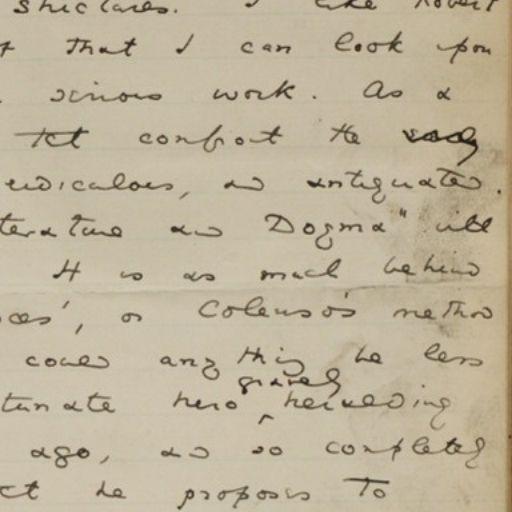 strictures. I like Robert
that I can look upon
serious work. As a
Tct confront the
ridiculous, and antiquated.
terature and Dogma" will
It is as much behind
ces', or Colenso's method
could any thing be less
tunate hero gravely heralding
ago, and so completely
ct he proposes to